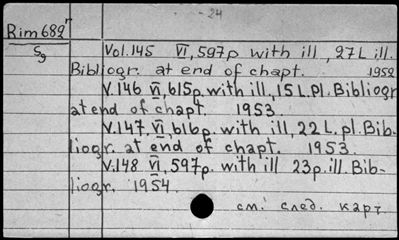 - 24
Rim 689ʳ
Sg
Vol. 145 VI, 597p with ill, 27 L ill.
Bibliogr. at end of chapt. 1952
V. 146 VI, 615p. with ill, 15 L. pl. Bibliogr
at end of chapt. 1953.
V. 147, VI, 616p. with ill, 22 L. pl. Bib-
liogr. at end of chapt. 1953.
V. 148 VI, 597p. with ill 23p. ill. Bib-
liogr. 1954.
см. след. карт